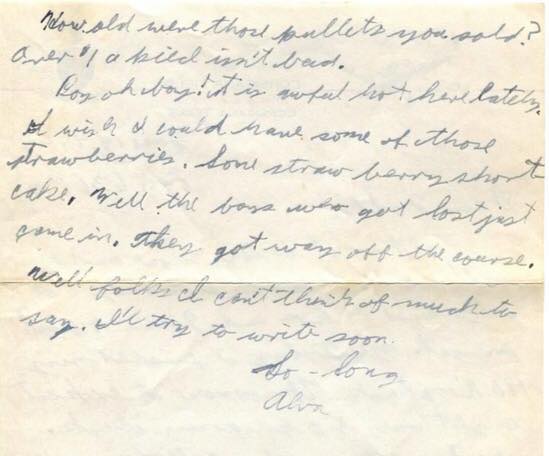 How old were those pullets you sold?
Over $1 a piece isn't bad.
Boy oh boy! it is awful hot here lately.
I wish I could have some of those
strawberries. Some straw berry short
cake. Well the boys who got lost just
came in. They got way off the course.
Well folks I can't think of much to
say. I'll try to write soon.
So-Long
Alva